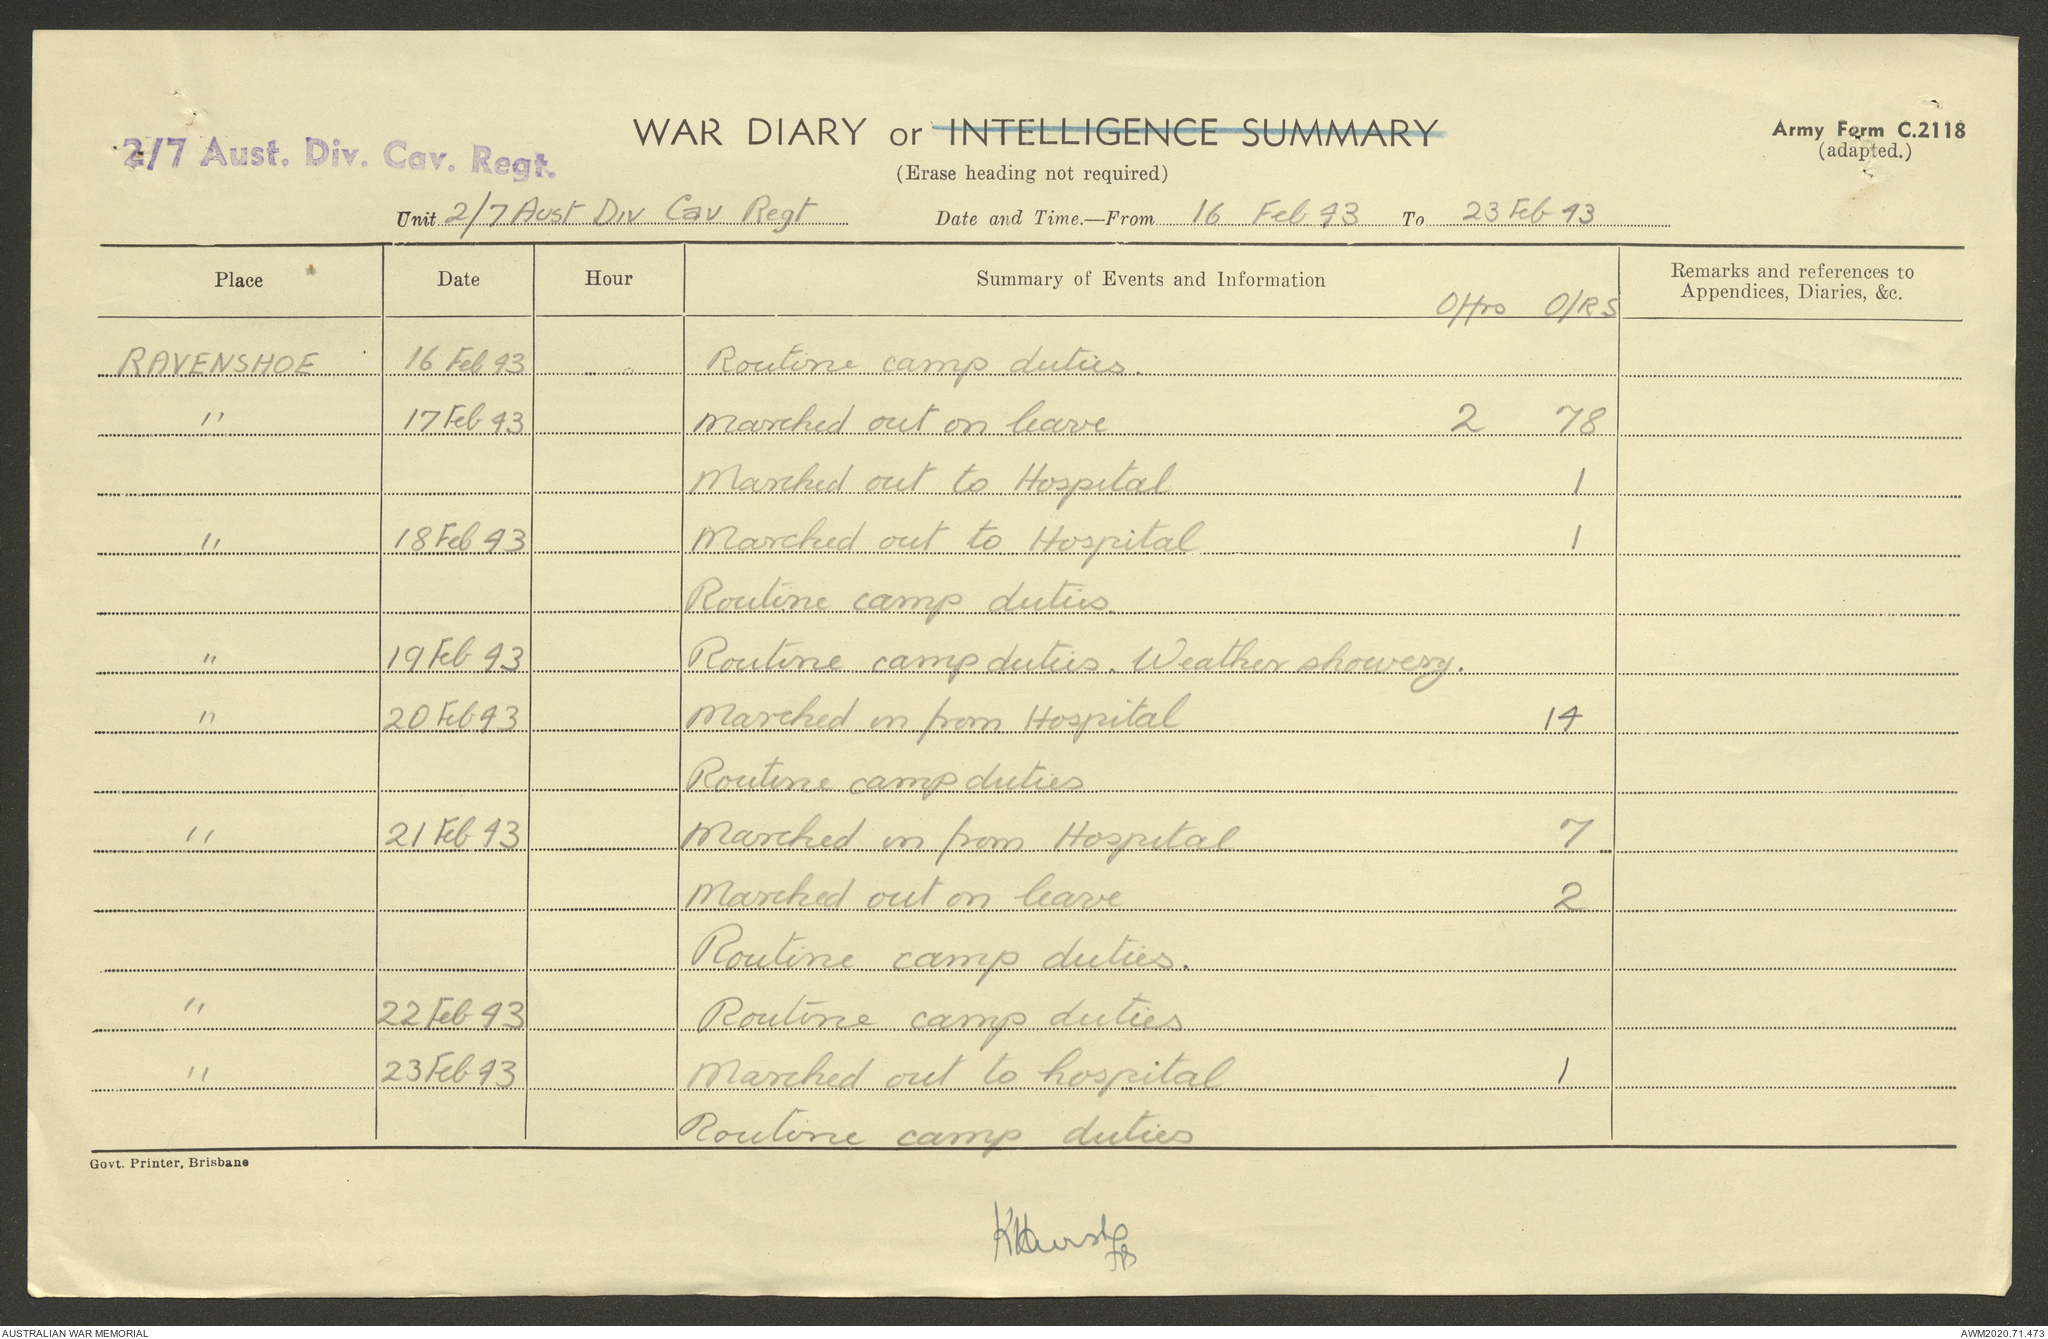 2/7 Aust. Div. Cav. Regt.
WAR DIARY or INTELLIGENCE SUMMARY
(Erase heading not required)
Army Form C.2118
(adapted.)
Unit 2/7 Aust Div Cav Regt Date and Time.—From 16 Feb 43 To 23 Feb 43
Place Date Hour Summary of Events and Information Remarks and references to
Appendices, Diaries, &c.
O/ffrs O/RS
RAVENSHOE 16 Feb 43 Routine camp duties.
" 17 Feb 43 Marched out on leave 2 78
Marched out to Hospital 1
" 18 Feb 43 Marched out to Hospital 1
Routine camp duties.
" 19 Feb 43 Routine camp duties. Weather showery.
" 20 Feb 43 Marched in from Hospital 14
Routine camp duties
" 21 Feb 43 Marched in from Hospital 7
Marched out on leave 2
Routine camp duties.
" 22 Feb 43 Routine camp duties
" 23 Feb 43 Marched out to hospital 1
Routine camp duties
Govt. Printer, Brisbane
AUSTRALIAN WAR MEMORIAL
AWM2020.71.473